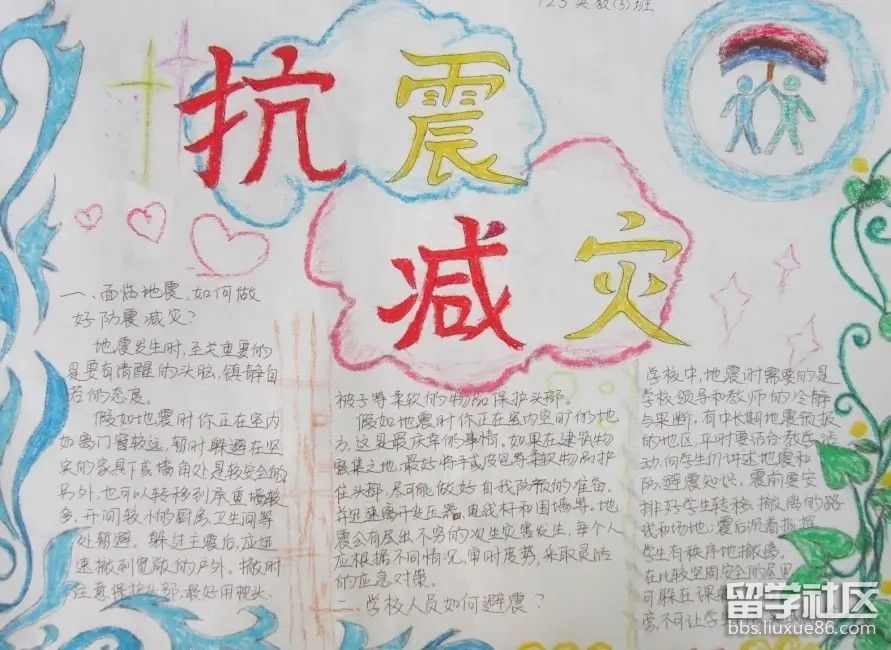 123 英教(3)班
抗 震
减 灾
一、面临地震,如何做
好防震减灾?
地震发生时,至关重要的
是要有清醒的头脑,镇静自
若的态度。
假如地震时你正在室内
如离门窗较远,暂时躲避在坚
实的家具下或墙角处是较安全的
另外,也可以转移到承重墙较
多、开间较小的厨房、卫生间等
处暂避。躲过主震后,应迅
速撤到宽敞的户外。撤时
注意保护头部,最好用枕头、
被子等柔软的物品保护头部。
假如地震时你正在室内空旷的地
方,这是最庆幸的事情。如果在建筑物
密集之地,最好将手或皮包等柔软物品护
住头部,尽可能做好自我防御的准备。
并迅速离开变压器、电线杆和围墙等。地
震会有层出不穷的次生灾害发生,每个人
应根据不同情况,审时度势,采取灵活
的应急对策
二、学校人员如何避震?
学校中,地震时需要的是
学校领导和教师的冷静
与果断。有中长期地震预报
的地区,平时要结合教学活
动,向学生们讲述地震和
防避震知识。震前要安
排好学生转移、撤离的路
线和场地;震后沉着指挥
学生有秩序地撤离。
在比较坚固安全的房里
可躲在课
不可让学
留学社区
bbs.liuxue86.com